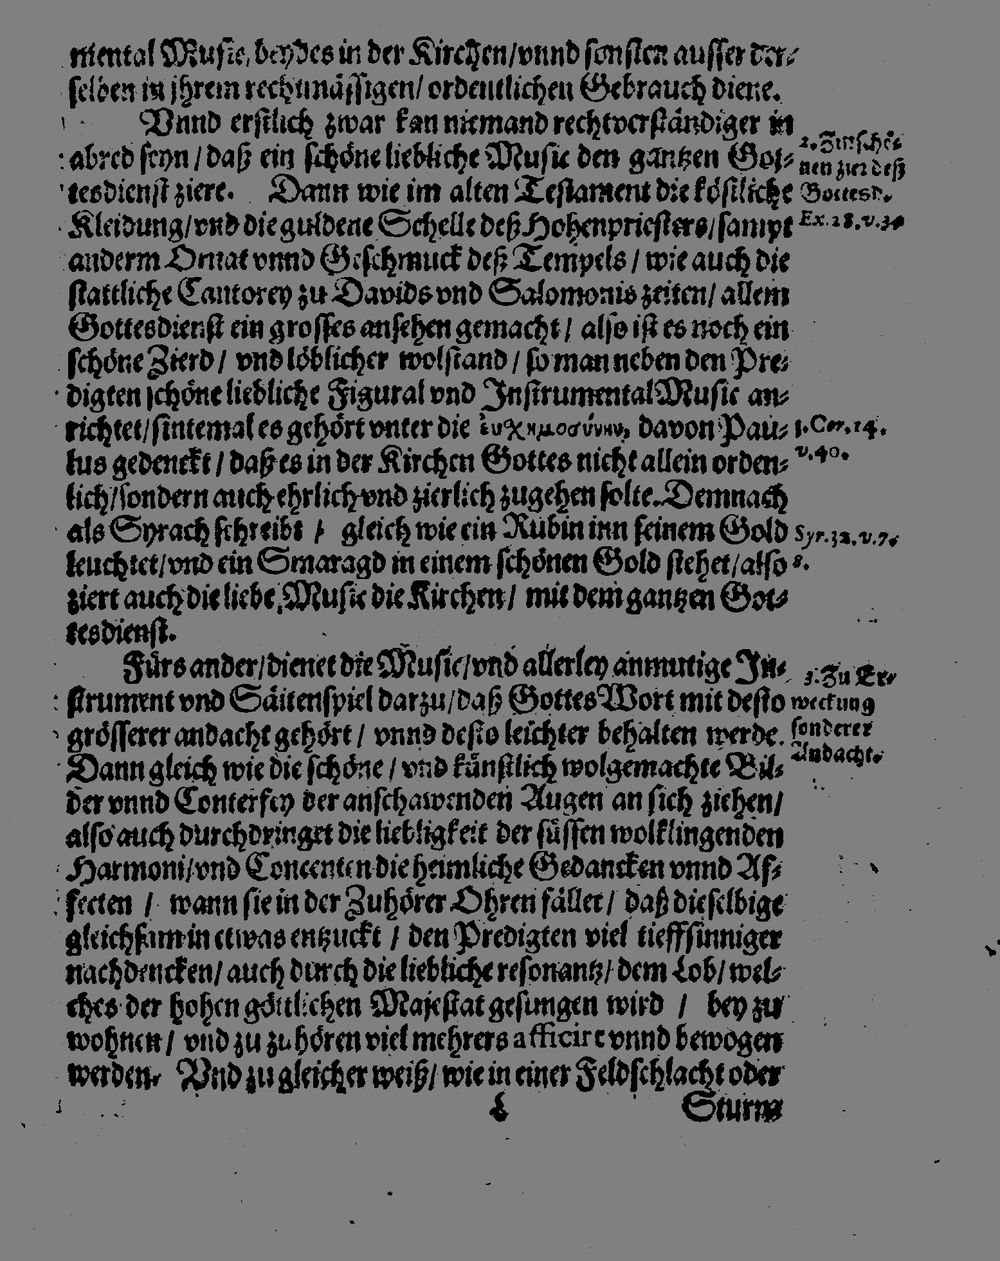 mental Music, beydes in der Kirchen/vnnd sonsten ausser der-
selben in jhrem rechtmässigen/ ordentlichen Gebrauch diene.
Vnnd erstlich zwar kan niemand rechtverständiger in
abred seyn/daß ein schöne liebliche Music den gantzen Got-
tesdienst ziere. Dann wie im alten Testament die köstliche
Kleidung/vnd die guldene Schelle deß Hohenpriesters/sampt
anderm Ornat vnnd Geschmuck deß Tempels/wie auch die
stattliche Cantorey zu Davids vnd Salomonis zeiten/ allem
Gottesdienst ein grosses ansehen gemacht/ also ist es noch ein
schöne Zierd/ vnd löblicher wolstand/so man neben den Pre-
digten schöne liebliche Figural vnd Instrumental Music an-
richtet/sintemal es gehört vnter die ἐυχημοσύνην, davon Pau-
lus gedenckt/daß es in der Kirchen Gottes nicht allein orden-
lich/sondern auch ehrlich vnd zierlich zugehen solte. Demnach
als Syrach schreibt/ gleich wie ein Rubin inn seinem Gold
leuchtet/vnd ein Smaragd in einem schönen Gold stehet/also
ziert auch die liebe Music die Kirchen/ mit dem gantzen Got-
tesdienst.
Fürs ander/dienet die Music/vnd allerley anmutige In-
strument vnd Säitenspiel darzu/daß Gottes Wort mit desto
grösserer andacht gehört/ vnnd desto leichter behalten werde.
Dann gleich wie die schöne/vnd künstlich wolgemachte Bil-
der vnnd Conterfey der anschawenden Augen an sich ziehen/
also auch durchdringet die liebligkeit der süssen wolklingenden
Harmoni/vnd Concenten die heimliche Gedancken vnnd Af-
fecten/ wann sie in der Zuhörer Ohren fället/ daß dieselbige
gleichsam in etwas entzuckt/den Predigten viel tieffsinniger
nachdencken/auch durch die liebliche resonantz/dem Lob/wel-
ches der hohen göttlichen Majestat gesungen wird/ bey zu
wohnen/ vnd zu zuhören viel mehrers afficirt vnnd bewogen
werden. Vnd zu gleicher weiß/wie in einer Feldschlacht oder
Sturm
2. Zur schö-
nen zier deß
Gottesd.
Ex. 28. v. 34
1. Cor. 14.
v. 40.
Syr. 32. v. 7.
8.
3. Zu Er-
weckung
sonderer
Andacht.